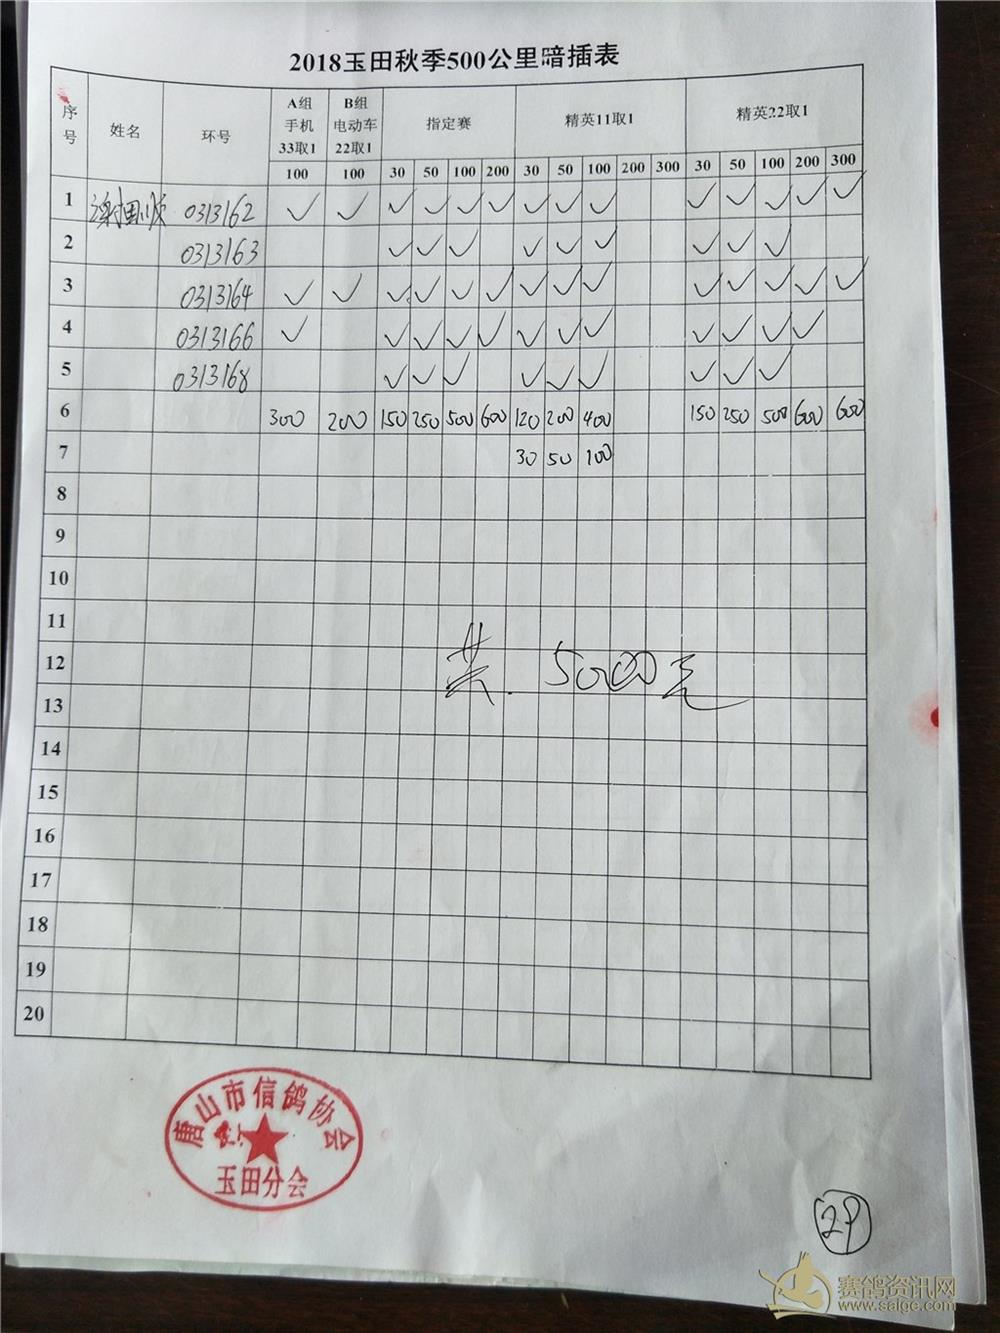 2018玉田秋季500公里暗插表
序号 姓名 环号 A组手机33取1 B组电动车22取1 指定赛 精英11取1 精英22取1
100 100 30 50 100 200 30 50 100 200 300 30 50 100 200 300
1 0313162 ✓ ✓ ✓ ✓ ✓ ✓ ✓ ✓ ✓ ✓ ✓ ✓ ✓ ✓
2 0313163 ✓ ✓ ✓ ✓ ✓ ✓ ✓ ✓ ✓
3 0313164 ✓ ✓ ✓ ✓ ✓ ✓ ✓ ✓ ✓ ✓ ✓ ✓ ✓ ✓
4 0313166 ✓ ✓ ✓ ✓ ✓ ✓ ✓ ✓ ✓ ✓ ✓ ✓
5 0313168 ✓ ✓ ✓ ✓ ✓ ✓ ✓ ✓ ✓
6 300 200 150 250 500 600 120 200 400 150 250 500 600 600
7 30 50 100
8
9
10
11
12
共 5000元
13
14
15
16
17
18
19
20
唐山市信鸽协会
玉田分会
29
赛鸽资讯网
www.saige.com